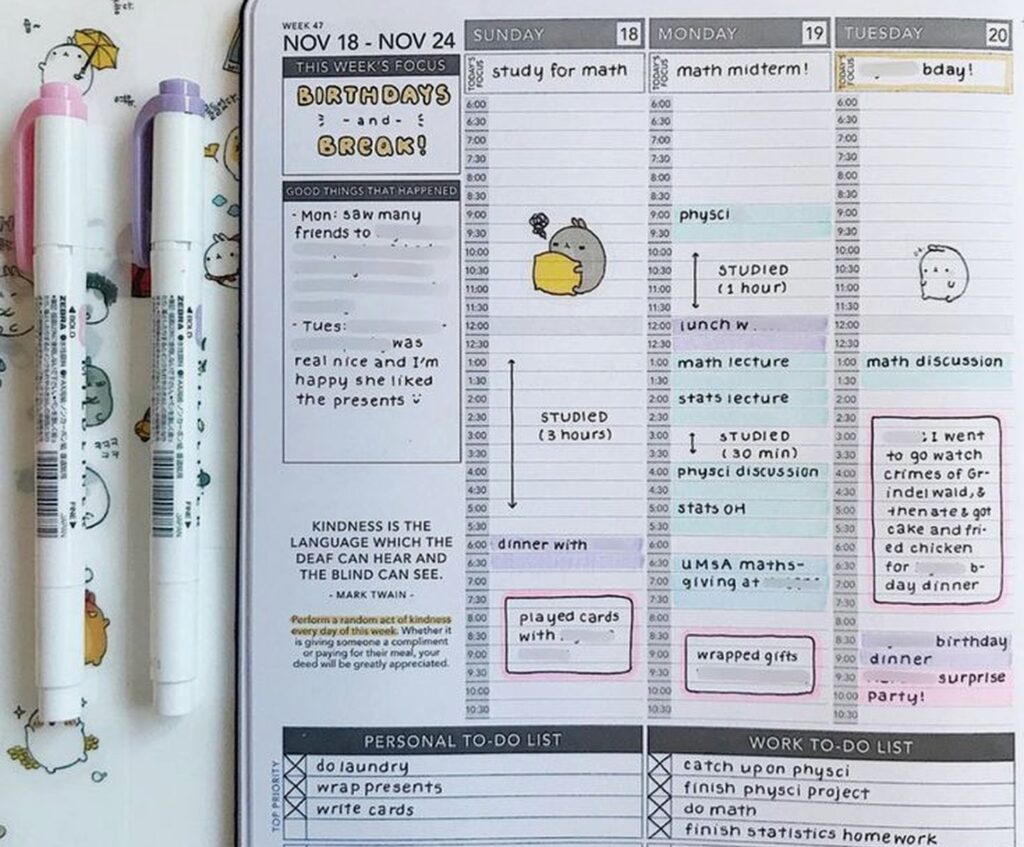 WEEK 47
NOV 18 - NOV 24
THIS WEEK'S FOCUS
BIRTHDAYS
- and -
BREAK!
GOOD THINGS THAT HAPPENED
- Mon: saw many
friends to
- Tues:
was
real nice and I'm
happy she liked
the presents
KINDNESS IS THE
LANGUAGE WHICH THE
DEAF CAN HEAR AND
THE BLIND CAN SEE.
- MARK TWAIN -
Perform a random act of kindness
every day of this week. Whether it
is giving someone a compliment
or paying for their meal, your
deed will be greatly appreciated.
SUNDAY 18
TODAY'S FOCUS
study for math
6:00
6:30
7:00
7:30
8:00
8:30
9:00
9:30
10:00
10:30
11:00
11:30
12:00
12:30
1:00
1:30
2:00
2:30 STUDIED
3:00 (3 hours)
3:30
4:00
4:30
5:00
5:30
6:00 dinner with
6:30
7:00
7:30
8:00 played cards
8:30 with
9:00
9:30
10:00
10:30
MONDAY 19
TODAY'S FOCUS
math midterm!
6:00
6:30
7:00
7:30
8:00
8:30
9:00 physci
9:30
10:00
10:30 STUDIED
11:00 (1 hour)
11:30
12:00 lunch w
12:30
1:00 math lecture
1:30
2:00 stats lecture
2:30
3:00 STUDIED
3:30 (30 min)
4:00 physci discussion
4:30
5:00 stats OH
5:30
6:00
6:30 UMSA maths-
7:00 giving at
7:30
8:00
8:30
9:00 wrapped gifts
9:30
10:00
10:30
TUESDAY 20
TODAY'S FOCUS
bday!
6:00
6:30
7:00
7:30
8:00
8:30
9:00
9:30
10:00
10:30
11:00
11:30
12:00
12:30
1:00 math discussion
1:30
2:00
2:30
3:00 ; I went
3:30 to go watch
4:00 crimes of Gr-
4:30 indelwald, &
5:00 then ate & got
5:30 cake and fri-
6:00 ed chicken
6:30 for b-
7:00 day dinner
7:30
8:00
8:30 birthday
9:00 dinner
9:30 surprise
10:00 party!
10:30
PERSONAL TO-DO LIST
TOP PRIORITY
do laundry
wrap presents
write cards
WORK TO-DO LIST
catch up on physci
finish physci project
do math
finish statistics homework
BOLD
ZEBRA
FINE
JAPAN
BOLD
ZEBRA
FINE
JAPAN